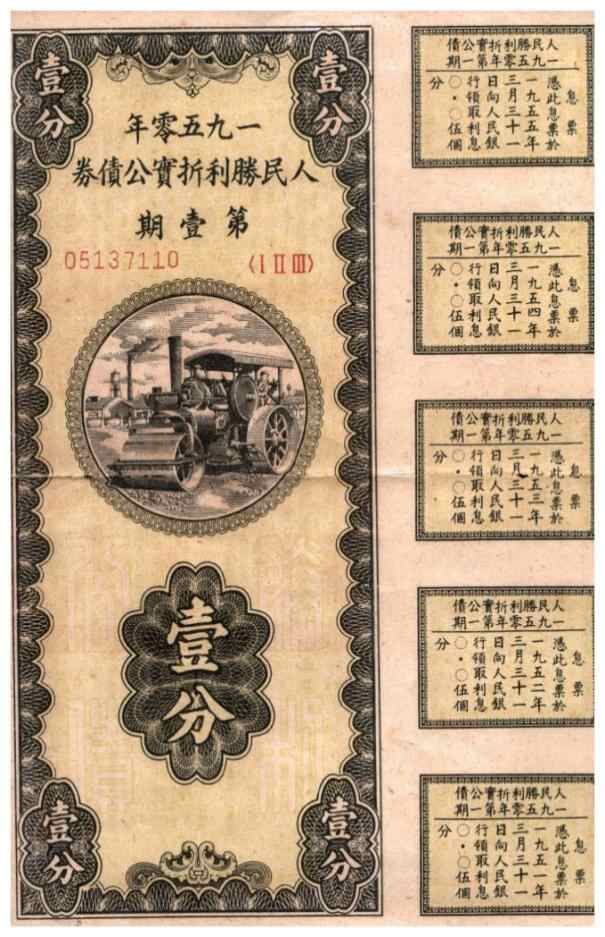 壹分
壹分
一九五零年
人民勝利折實公債券
第壹期
05137110
(I II III)
壹分
壹分
壹分
人民勝利折實公債
一九五零年第一期
息票
憑此息票於
一九五五年
三月三十一
日向人民銀
行領取利息
〇·〇伍個
分
人民勝利折實公債
一九五零年第一期
息票
憑此息票於
一九五四年
三月三十一
日向人民銀
行領取利息
〇·〇伍個
分
人民勝利折實公債
一九五零年第一期
息票
憑此息票於
一九五三年
三月三十一
日向人民銀
行領取利息
〇·〇伍個
分
人民勝利折實公債
一九五零年第一期
息票
憑此息票於
一九五二年
三月三十一
日向人民銀
行領取利息
〇·〇伍個
分
人民勝利折實公債
一九五零年第一期
息票
憑此息票於
一九五一年
三月三十一
日向人民銀
行領取利息
〇·〇伍個
分